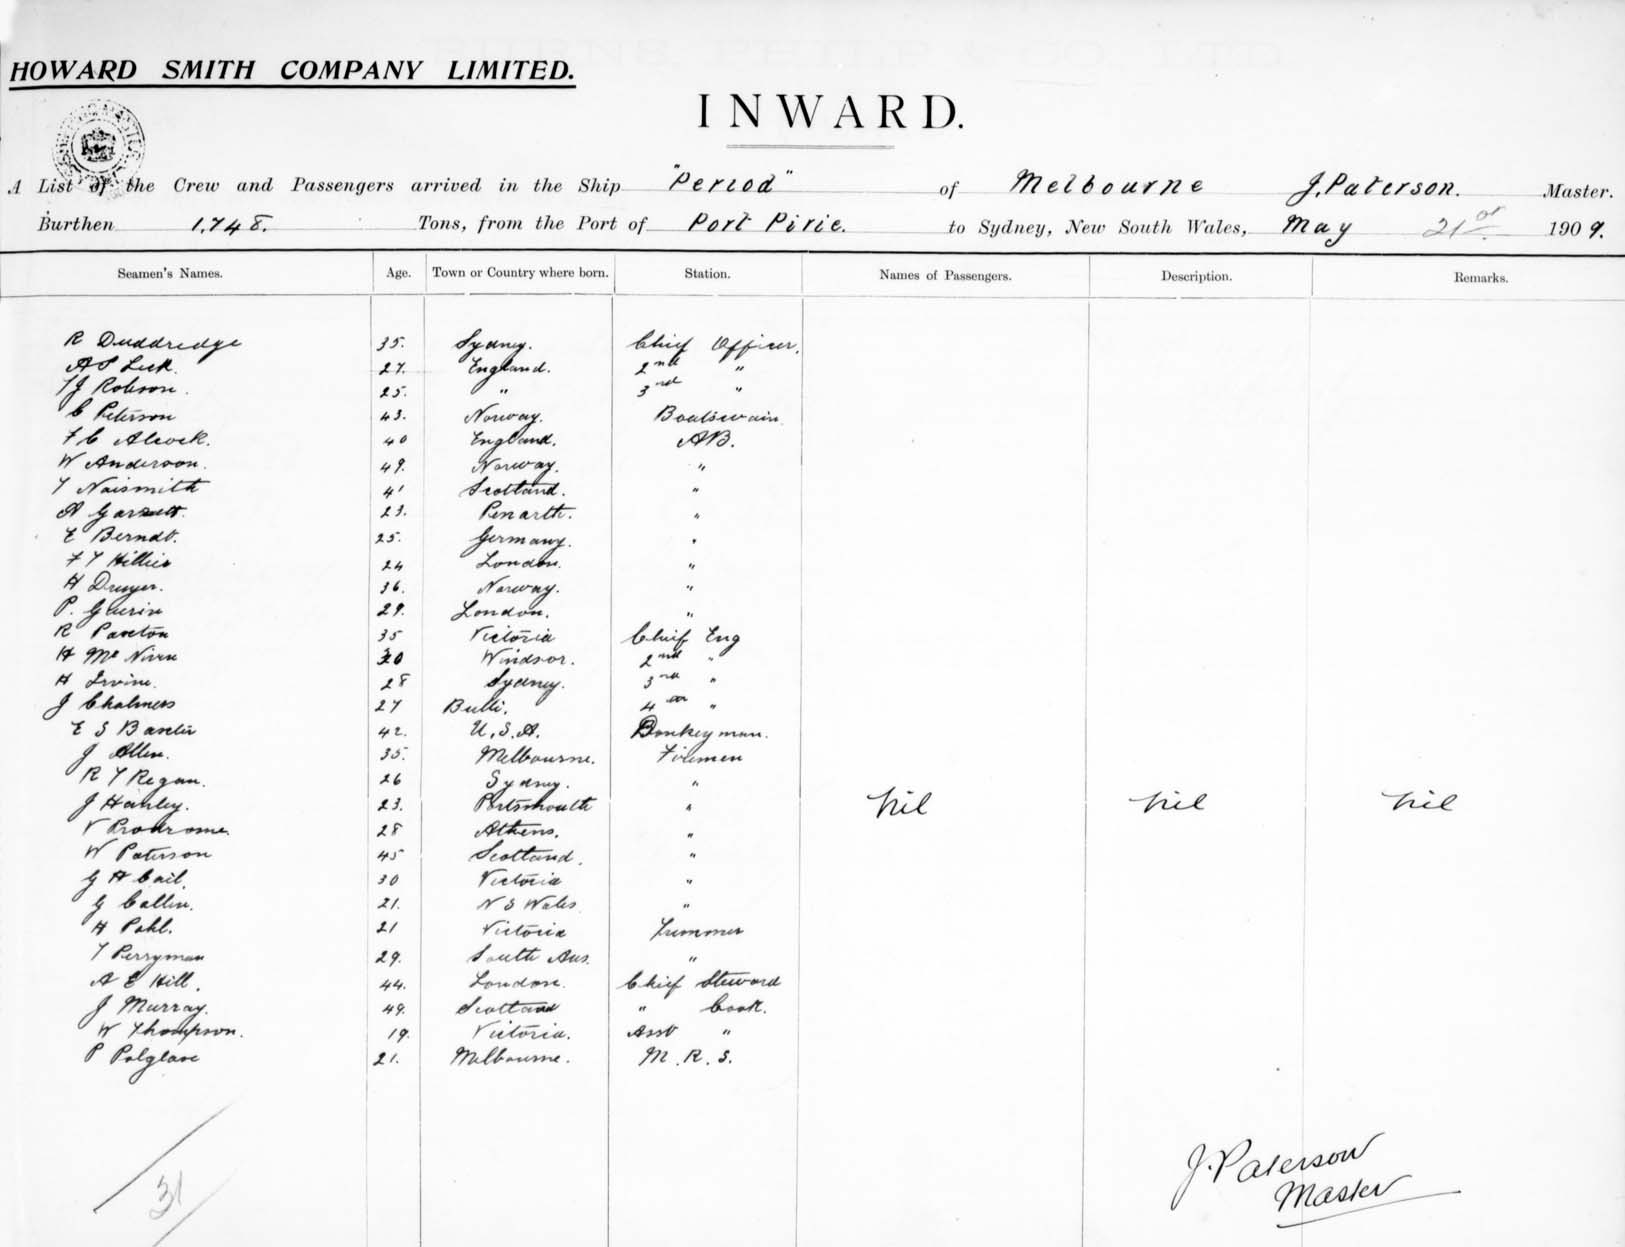 HOWARD SMITH COMPANY LIMITED.
INWARD.
A List of the Crew and Passengers arrived in the Ship "Period" of Melbourne J. Paterson. Master.
Burthen 1,748. Tons, from the Port of Port Pirie. to Sydney, New South Wales, May 21st 1909.
Seamen's Names. Age. Town or Country where born. Station. Names of Passengers. Description. Remarks.
R Duddredge 35. Sydney. Chief Officer.
A S Leck. 27. England. 2nd "
T J Robson. 25. " 3rd "
C Peterson 43. Norway. Boatswain.
F C Alcock. 40 England. AB.
W Anderson. 49. Norway. "
T Naismith 41 Scotland. "
A Garrett. 23. Penarth. "
E Berndt. 25. Germany. "
F T Hillier 24 London. "
H Dreyer. 36. Norway. "
P. Guerin 29. London. "
R Paxton 35 Victoria Chief Eng
H Mc Niven 30 Windsor. 2nd "
H Irvine. 28 Sydney. 3rd "
J Chalmers 27 Bulli. 4th "
E S Baxter 42. U.S.A. Donkeyman.
J Allen. 35. Melbourne. Firemen
R T Regan. 26 Sydney. "
J Hanley. 23. Portsmouth "
V Prodrome. 28 Athens. "
W Paterson 45 Scotland. "
G H Cail. 30 Victoria "
G Callin. 21. N S Wales. "
H Pohl. 21 Victoria Trimmer
T Perryman 29. South Aus. "
A E Hill. 44. London. Chief Steward
J Murray. 49. Scotland " Cook.
W Thompson. 19. Victoria. Asst "
P Polglase 21. Melbourne. M.R.S.
Nil Nil Nil
31
J. Paterson
Master